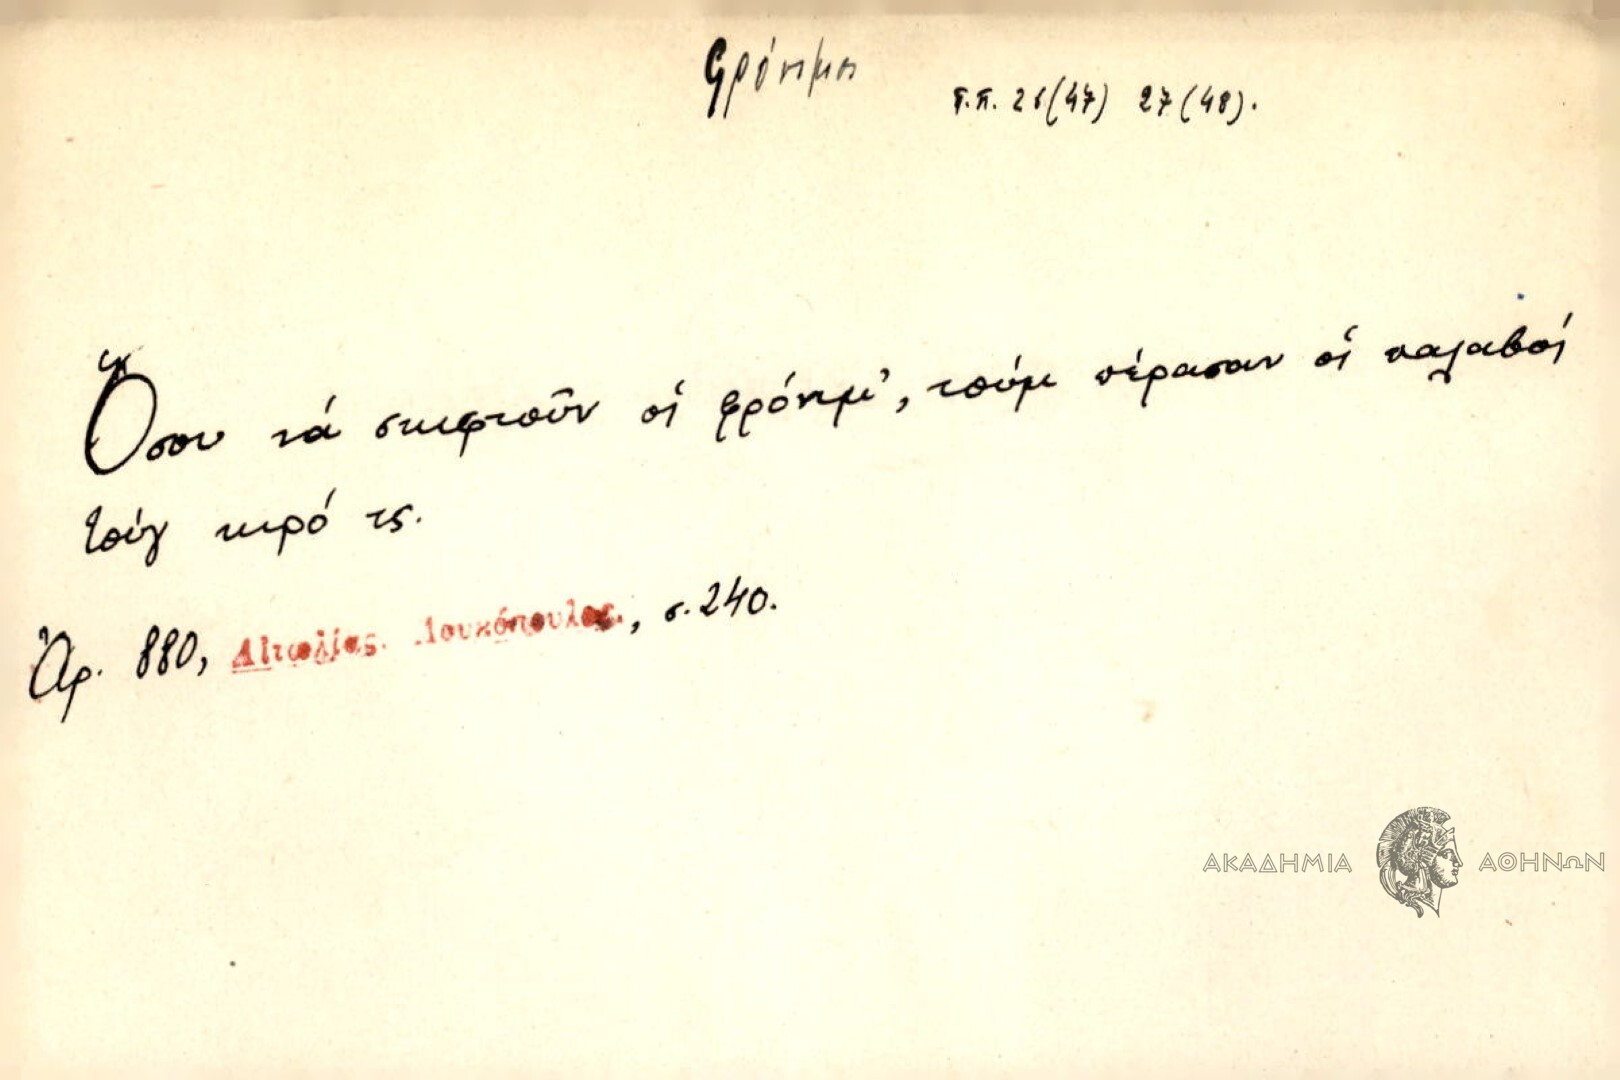 φρόνιμοι
π.π. 26(47) 27(48).
Ὥσου νά σκιφτοῦν οἱ φρόνιμ', τούμ πέρασαν οἱ παλαβοί
τούγ κιρό τς.
Ἀρ. 880, Αἰτωλίας. Λουκόπουλος, σ. 240.
ΑΚΑΔΗΜΙΑ ΑΘΗΝΩΝ